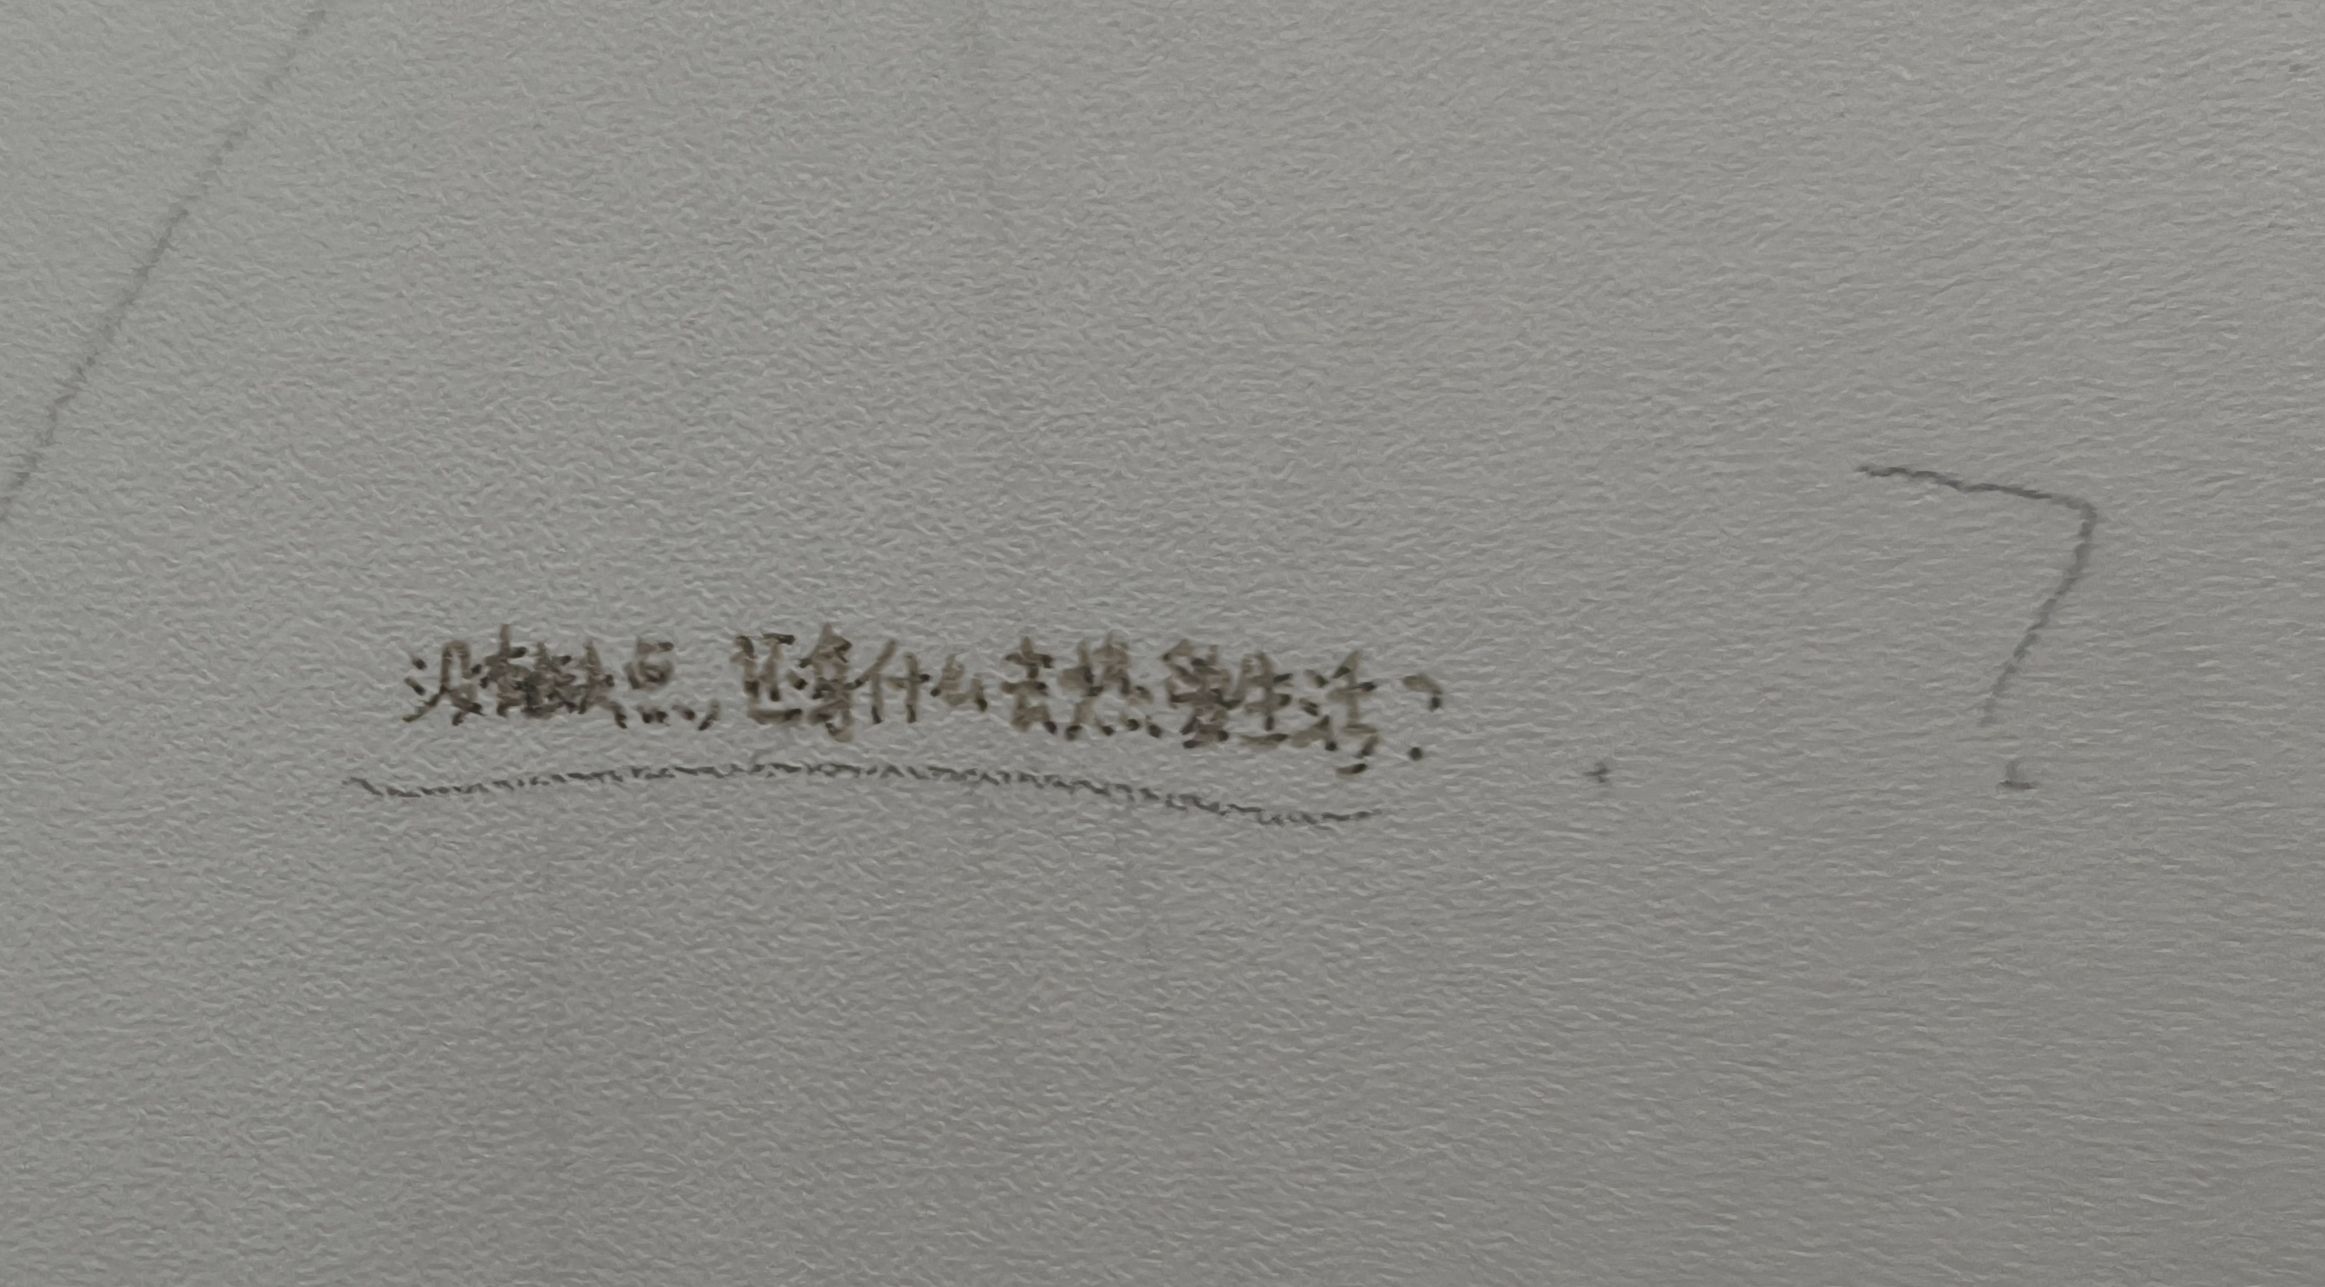 没有缺点,还等什么去热爱生活?